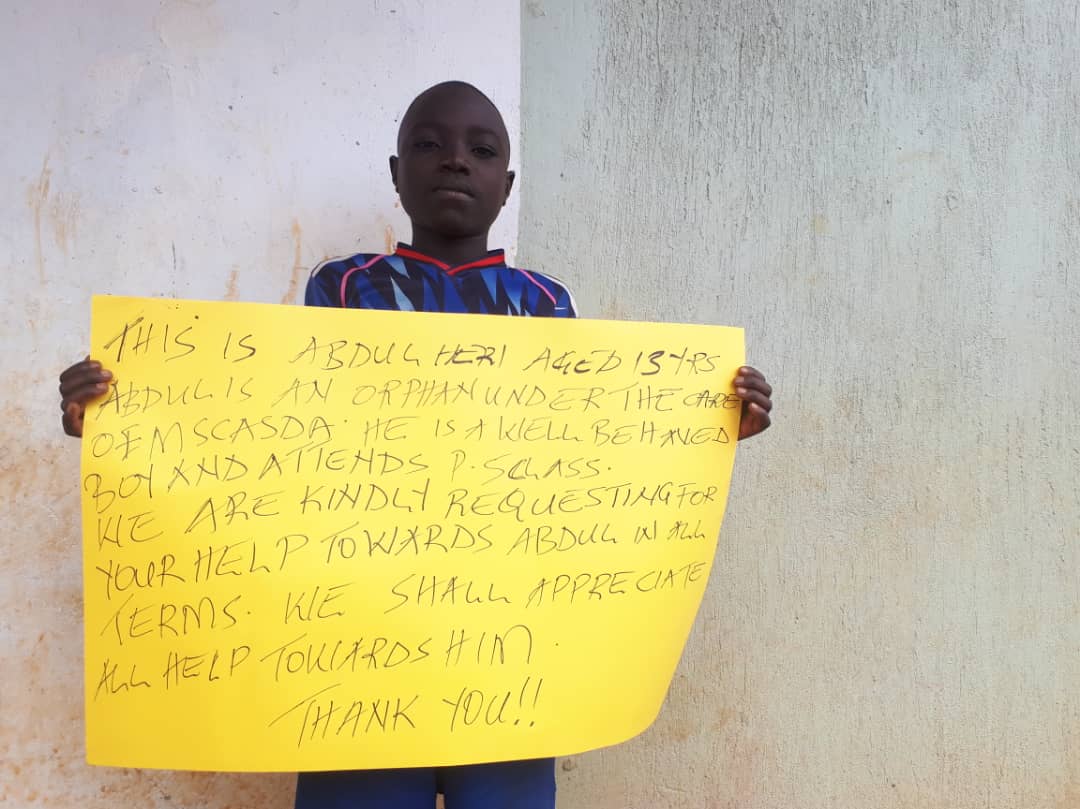 THIS IS ABDUL HERI AGED 13 YRS
ABDUL IS AN ORPHAN UNDER THE CARE
OF MSCASDA. HE IS A WELL BEHAVED
BOY AND ATTENDS P.5 CLASS.
WE ARE KINDLY REQUESTING FOR
YOUR HELP TOWARDS ABDUL IN ALL
TERMS. WE SHALL APPRECIATE
ALL HELP TOWARDS HIM.
THANK YOU!!